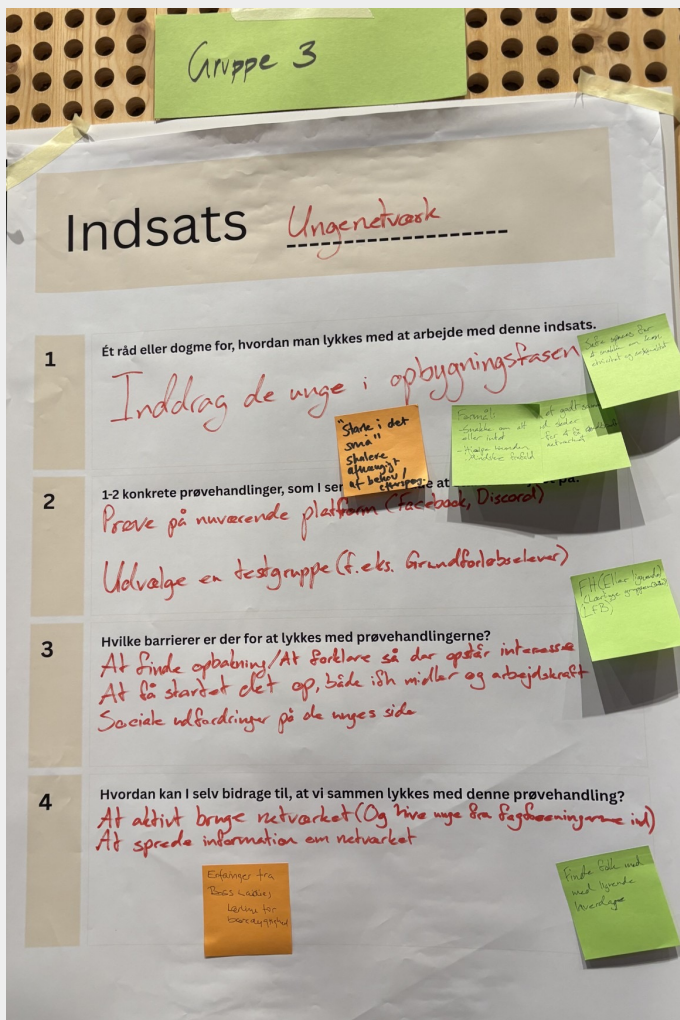 Gruppe 3
Indsats Ungenetværk
1
Ét råd eller dogme for, hvordan man lykkes med at arbejde med denne indsats.
Inddrag de unge i opbygningsfasen
"Starte i det
små"
skalere
afhængigt
af behov/
Formål:
- Snakke om alt
eller intet
- Hjælpe hinanden
2
1-2 konkrete prøvehandlinger, som I ser
Prøve på nuværende platform (Facebook, Discord)
Udvælge en testgruppe (f.eks. Grundforløbselever)
FH (Eller lignende)
LFB)
3
Hvilke barrierer er der for at lykkes med prøvehandlingerne?
At finde opbakning/At forklare så der opstår interesse
At få startet det op, både ift midler og arbejdskraft
Sociale udfordringer på de unges side
4
Hvordan kan I selv bidrage til, at vi sammen lykkes med denne prøvehandling?
At aktivt bruge netværket (Og hive unge fra fagforeningerne ind)
At sprede information om netværket
Erfaringer fra
Boss Ladies,
Finde folk med
med lignende
hverdage